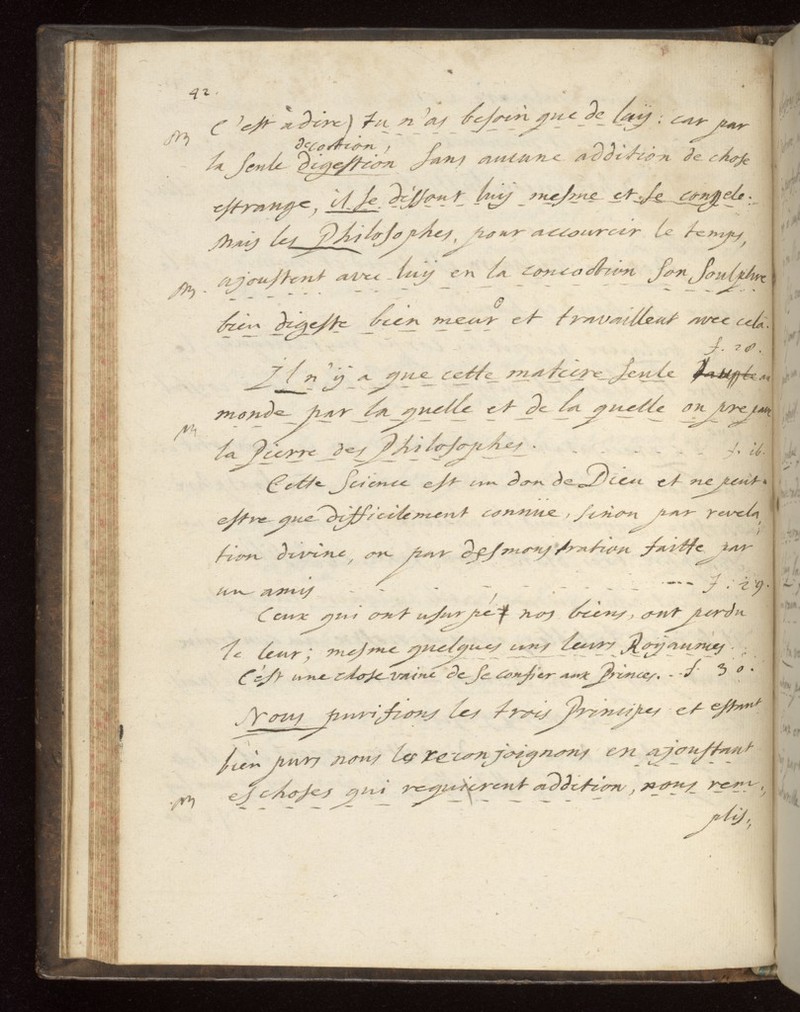 42.
C'est à dire) tu n'as besoin que de luÿ: car par
decoction,
la seule digestion sans aucune addition de chose
estrange, il se dissout luÿ mesme et se congele.
Mais les Philosophes, pour accourcir le temps,
ajoustent avec luÿ en la concoction son soulphre
bien digeste bien meur et travaillent avec cela.
f. 28.
Il n'ÿ a que cette matiere seule au
monde par la quelle et de la quelle on prepare
la Pierre des Philosophes. f. ib.
Cette science est un don de Dieu et ne peut
estre que difficilement connüe, sinon par revela,
tion divine, ou par desmonstration faitte par
un amis --- f. 29.
Ceux qui ont usurpé nos biens, ont perdu
le leur; mesme quelques uns leurs Roÿaumes.
C'est une chose vaine de se confier aux Princes. - f. 30.
Nous purifions les trois Principes et estant
bien purs nous les reconjoignons en ajoustant
es choses qui requierent addition, nous rem,,
plis,,